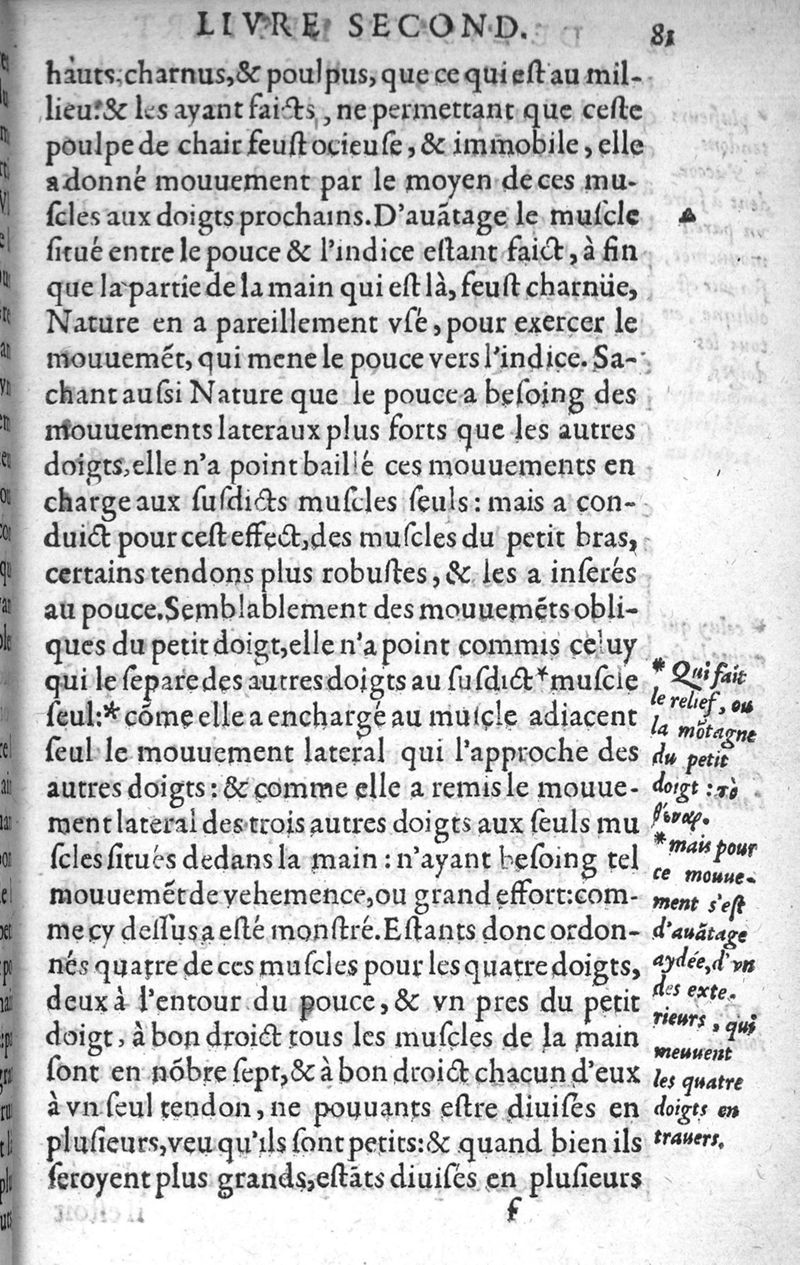 LIVRE SECOND. 81
hauts,charnus,& poulpus, que ce qui eſt au mil-
lieu:& les ayant faicts, ne permettant que ceſte
poulpe de chair feuſt ocieuſe, & immobile, elle
a donné mouuement par le moyen de ces mu-
ſcles aux doigts prochains. D'auãtage le muſcle
ſitué entre le pouce & l'indice eſtant faict, à fin
que la partie de la main qui eſt là, feuſt charnüe,
Nature en a pareillement vſé, pour exercer le
mouuemẽt, qui mene le pouce vers l'indice. Sa-
chant auſsi Nature que le pouce a beſoing des
mouuements lateraux plus forts que les autres
doigts, elle n'a point baillé ces mouuements en
charge aux ſuſdicts muſcles ſeuls: mais a con-
duict pour ceſt effect, des muſcles du petit bras,
certains tendons plus robuſtes, & les a inſerés
au pouce. Semblablement des mouuemẽts obli-
ques du petit doigt, elle n'a point commis celuy
qui le ſepare des autres doigts au ſuſdict *muſcle
ſeul:* cõme elle a enchargé au muſcle adiacent
ſeul le mouuement lateral qui l'approche des
autres doigts: & comme elle a remis le mouue-
ment lateral des trois autres doigts aux ſeuls mu
ſcles ſitués dedans la main: n'ayant beſoing tel
mouuemẽt de vehemence, ou grand effort: com-
me cy deſſus a eſté monſtré. Eſtants donc ordon-
nés quatre de ces muſcles pour les quatre doigts,
deux à l'entour du pouce, & vn pres du petit
doigt, à bon droict tous les muſcles de la main
ſont en nõbre ſept, & à bon droict chacun d'eux
à vn ſeul tendon, ne pouuants eſtre diuiſes en
pluſieurs, veu qu'ils ſont petits: & quand bien ils
ſeroyent plus grands, eſtãts diuiſes en pluſieurs
f
* Qui fait
le relief, ou
la mõtagne
du petit
doigt : τὸ
*mais pour
ce mouue-
ment s'eſt
d'auãtage
aydée, d'vn
des exte-
rieurs, qui
meuuent
les quatre
doigts en
trauers.